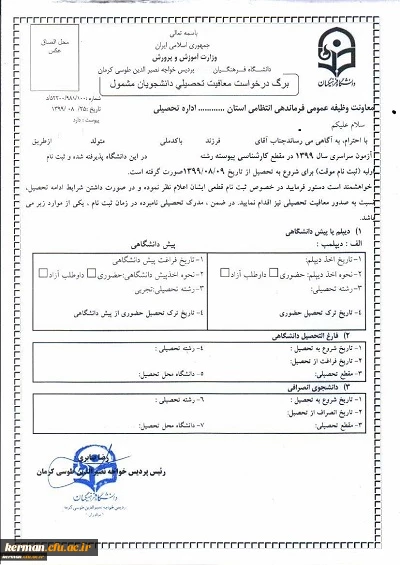 باسمه تعالی
جمهوری اسلامی ایران
وزارت آموزش و پرورش
دانشگاه فرهنگیان پردیس خواجه نصیر الدین طوسی کرمان
برگ درخواست معافیت تحصیلی دانشجویان مشمول
محل الصاق
عکس
دانشگاه فرهنگیان
شماره: ۵۲۲۰۰/۹۸۱/۱۰۰/د
تاریخ: ۲۵/ ۰۸/ ۱۳۹۹
پیوست: دارد
معاونت وظیفه عمومی فرماندهی انتظامی استان ............ اداره تحصیلی
سلام علیکم
با احترام، به آگاهی می رساندجناب آقای فرزند باکدملی متولد ازطریق
آزمون سراسری سال ۱۳۹۹ در مقطع کارشناسی پیوسته رشته در این دانشگاه پذیرفته شده و ثبت نام
اولیه (ثبت نام موقت) برای شروع به تحصیل از تاریخ ۱۳۹۹/۰۸/۰۹صورت گرفته است.
خواهشمند است دستور فرمایید در خصوص ثبت نام قطعی ایشان اعلام نظر نموده و در صورت داشتن شرایط ادامه تحصیل،
نسبت به صدور معافیت تحصیلی نیز اقدام نمایید. در ضمن ، مدرک تحصیلی نامبرده در زمان ثبت نام ، یکی از موارد زیر می
باشد.
۱) دیپلم یا پیش دانشگاهی
الف : دیپلمب : پیش دانشگاهی
۱- تاریخ اخذ دیپلم:
۲- نحوه اخذ دیپلم: حضوری داوطلب آزاد
۳- رشته تحصیلی:
تاریخ ترک تحصیل حضوری
۱- تاریخ فراغت پیش دانشگاهی
۲-نحوه اخذپیش دانشگاهی:حضوری داوطلب آزاد
۳- رشته تحصیلی:تجربی
تاریخ ترک تحصیل حضوری از پیش دانشگاهی
۲) فارغ التحصیل دانشگاهی
۱- تاریخ شروع به تحصیل : ۴- رشته تحصیلی :
۲- تاریخ فراغت از تحصیل :
۳- مقطع تحصیلی : ۵- دانشگاه محل تحصیل:
۳) دانشجوی انصرافی
۱- تاریخ شروع به تحصیل : ۶- رشته تحصیلی :
۲- تاریخ انصراف از تحصیل :
۳- مقطع تحصیلی: ۷- دانشگاه محل تحصیل:
رضا صابری
رئیس پردیس خواجه نصیر الدین طوسی کرمان
دانشگاه فرهنگیان
پردیس خواجه نصیر الدین طوسی کرمان
kerman.cfu.ac.ir